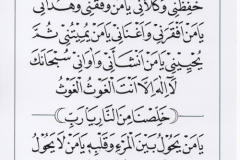 حَفِظَنِي وَكَلَانِي يَا مَنْ وَفَّقَنِي وَهَدَانِي
يَا مَنْ اَفْقَرَنِي وَاَغْنَانِي يَا مَنْ يُمِيتُنِي ثُمَّ
يُحْيِينِي يَا مَنْ اَنْشَاَنِي وَاٰوَانِي سُبْحَانَكَ
لَا اِلٰهَ اِلَّا اَنْتَ الْغَوْثُ الْغَوْثُ
خَلِّصْنَا مِنَ النَّارِ يَا رَبِّ
يَا مَنْ يَحُولُ بَيْنَ الْمَرْءِ وَقَلْبِهِ يَا مَنْ لَا يَحُولُ